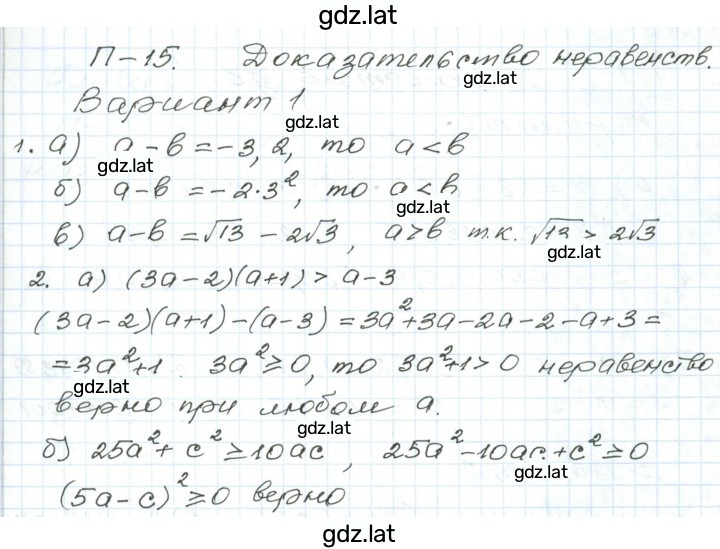 gdz.lat
П-15. Доказательство неравенств.
gdz.lat
Вариант 1
gdz.lat
1. а) a - в = -3,2, то a < в
gdz.lat
б) a - в = -2·3², то a < в
gdz.lat
в) a - в = √13 - 2√3, a > в т.к. √13 > 2√3
gdz.lat
2. а) (3a-2)(a+1) > a-3
(3a-2)(a+1)-(a-3) = 3a²+3a-2a-2-a+3 =
= 3a²+1. 3a² ≥ 0, то 3a²+1 > 0 неравенство
gdz.lat
верно при любом a.
gdz.lat
б) 25a² + c² ≥ 10ac, 25a² - 10ac + c² ≥ 0
gdz.lat
(5a-c)² ≥ 0 верно
gdz.lat